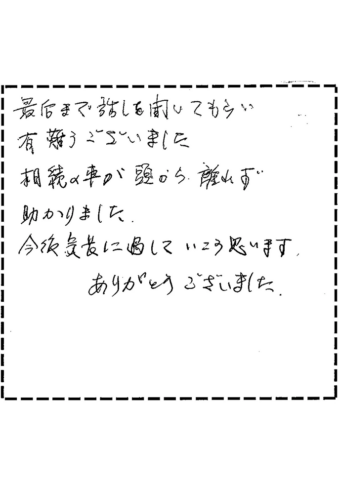 最后まで話しを聞いてもらい
有難うございました
相続の事が頭から離れず
助かりました.
今後気長に過していこう思います.
ありがとうございました.